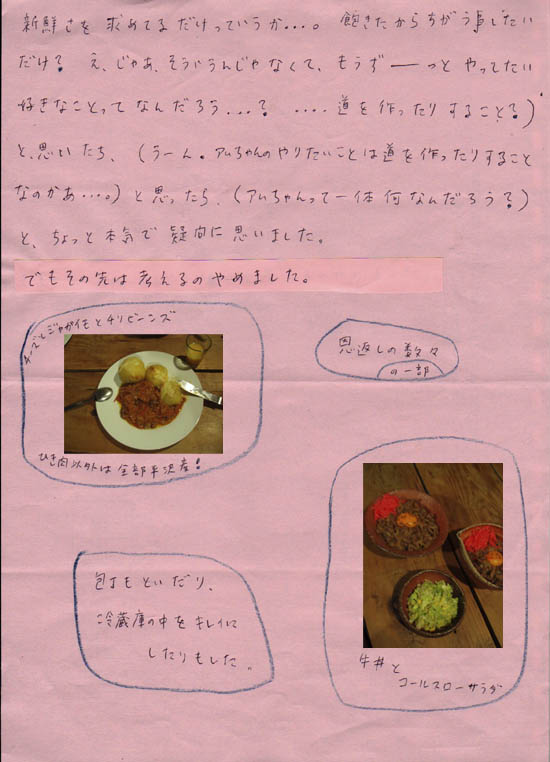 新鮮さを求めてるだけっていうか…。飽きたからちがう事したい
だけ？え、じゃあ、そういうんじゃなくて、もうず――っとやってたい
好きなことってなんだろう...？....道を作ったりすること？)
と、思いたち、(うーん。アムちゃんのやりたいことは道を作ったりすること
なのかあ…。)と思ったら、(アムちゃんって一体何なんだろう？)
と、ちょっと本気で疑問に思いました。
でもその先は考えるのやめました。
チーズとジャガイモとチリビーンズ
ひき肉以外は全部平沢産！
恩返しの数々
の一部
包丁もといだり、
冷蔵庫の中をキレイに
したりもした。
牛丼と
コールスローサラダ